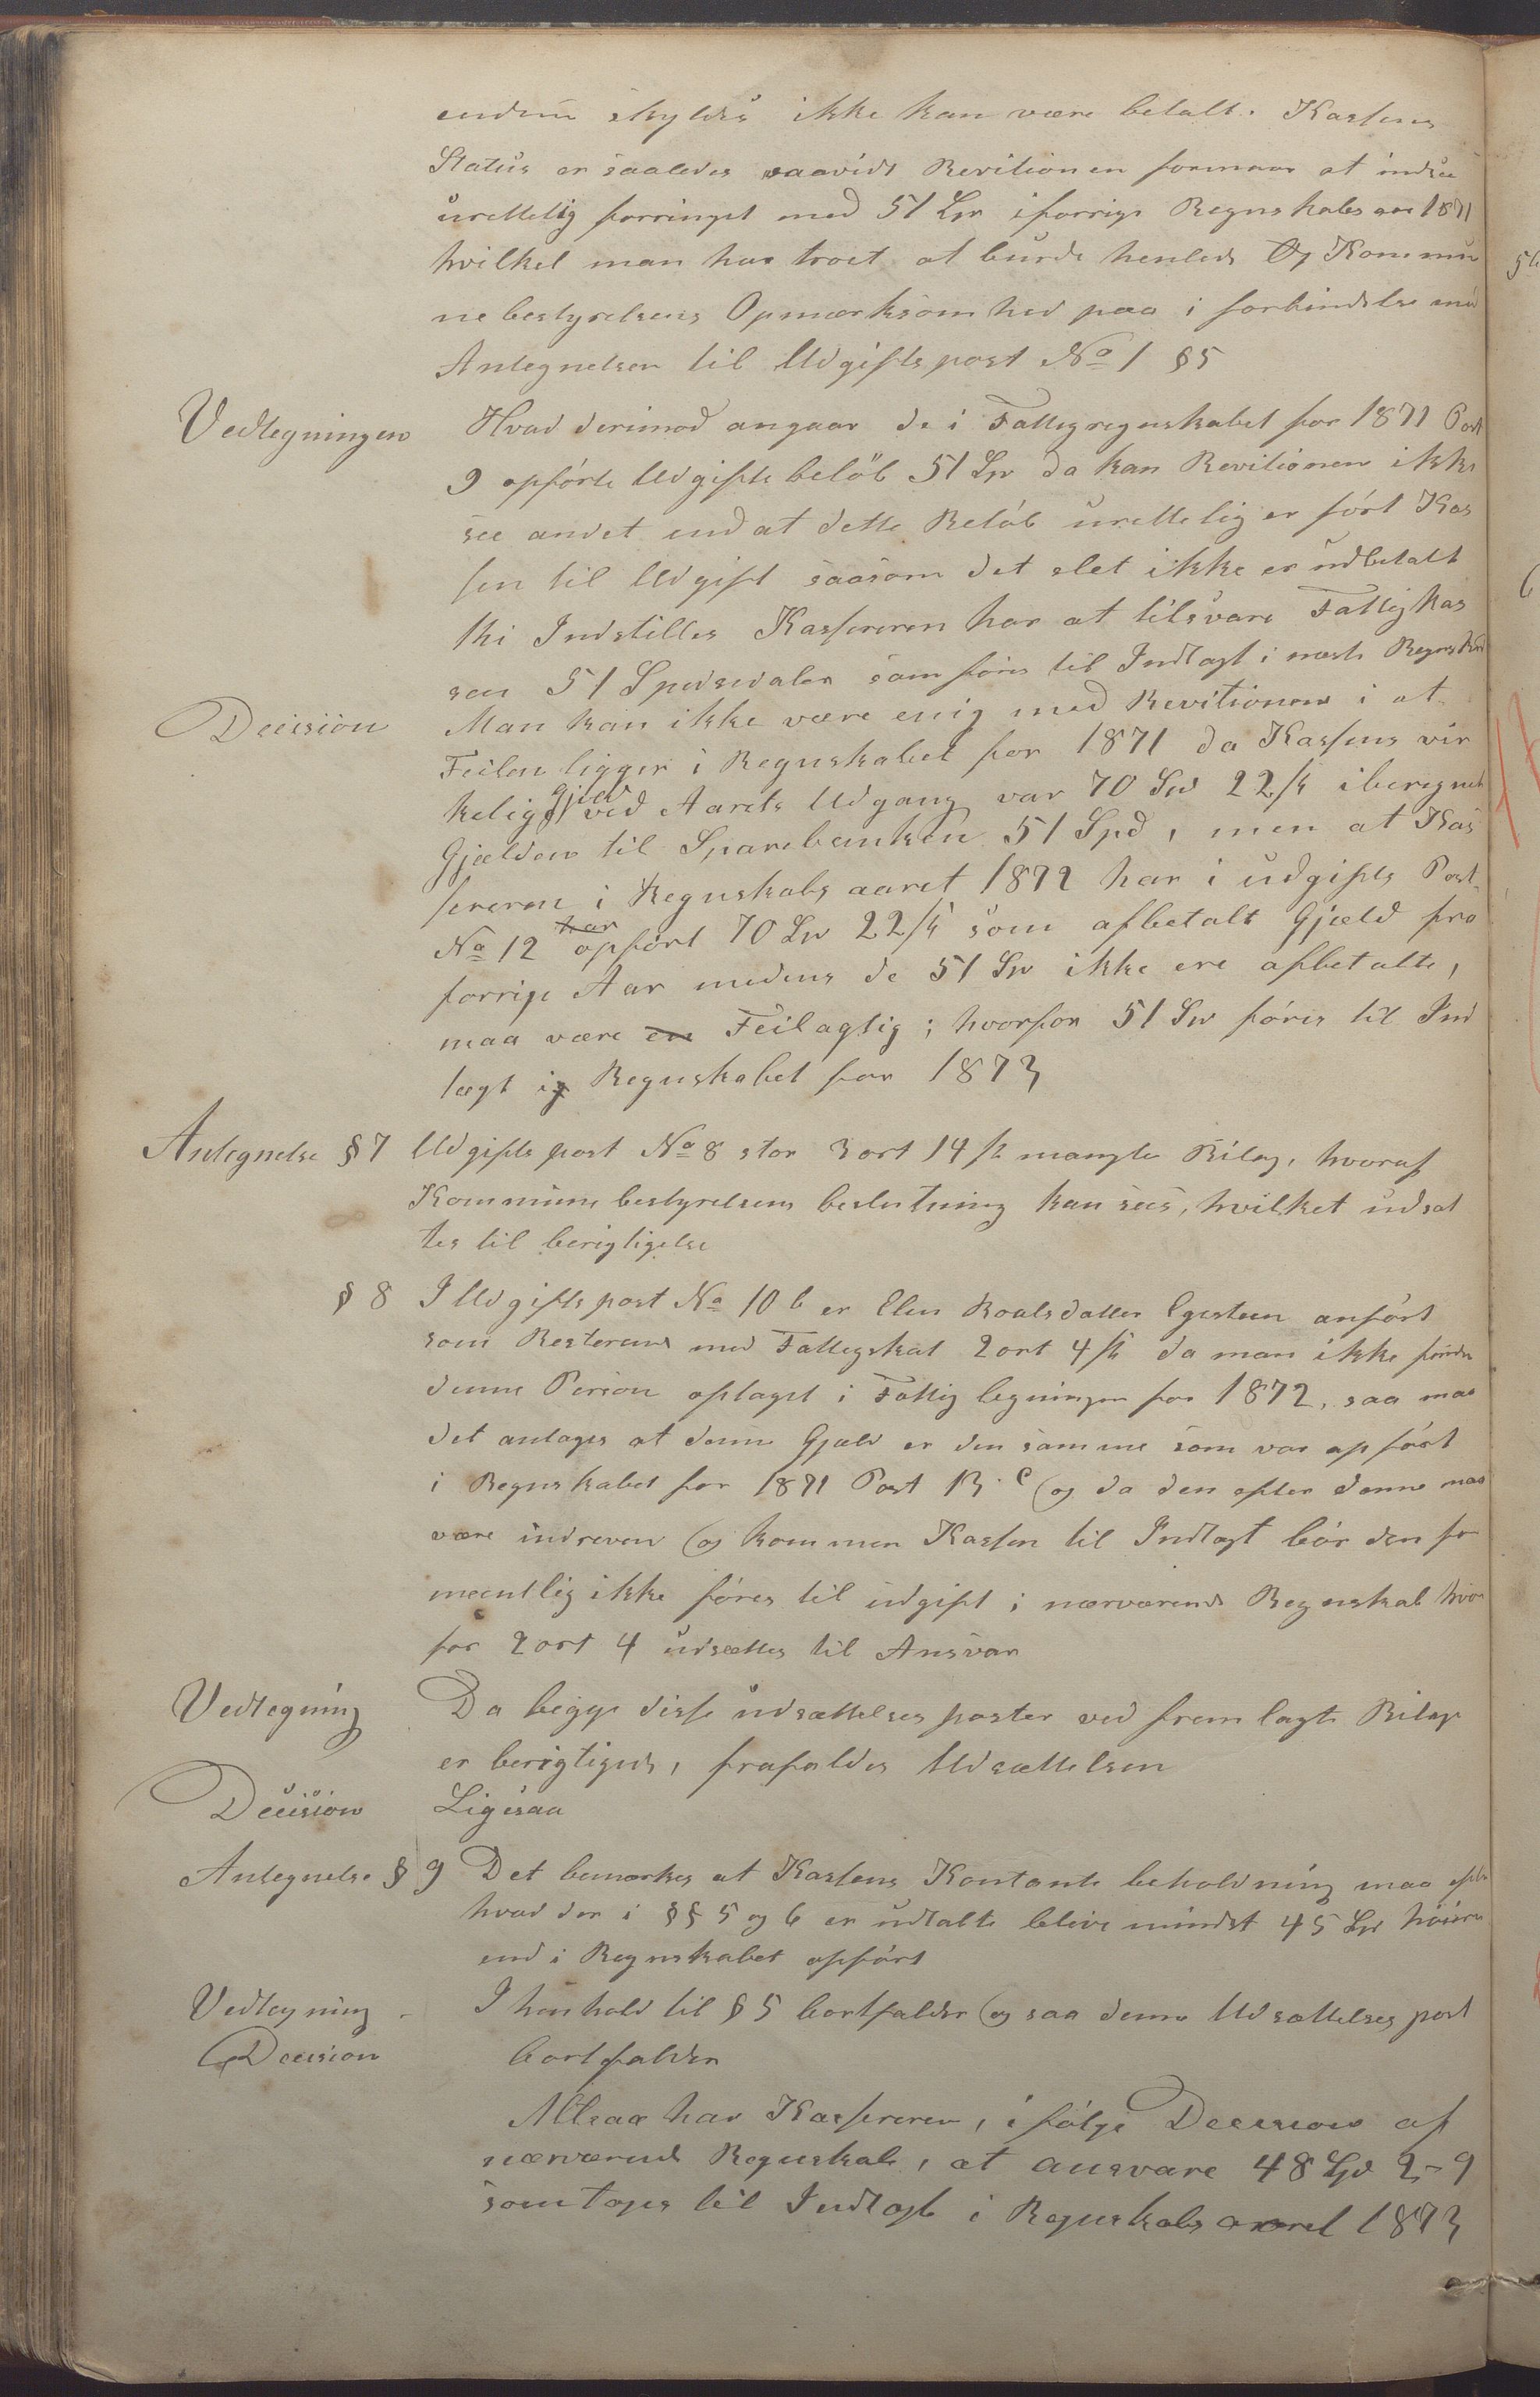 endnu skyldes ikke kan være betalt. Kassens
Status er saaledes saavidt Revitionen formaar at indsee
urettelig forringet med 51 Spd i forrige Regnskabsaar 1871
hvilket man har troet at burde henlede Kommu
nebestyrelsens Opmærksomhed paa i forbindelse med
Antegnelsen til Udgiftspost No 1 § 5
Vedtegningen Hvad derimod angaar de i Fattigregnskabet for 1871 Post
9 opförte Udgifts belöb 51 Spd da kan Revitionen ikke
see andet end at dette Belöb urettelig er fört Kas
sen til Udgift saasom det slet ikke er udbetalt
thi Indstilles Kassereren har at tilsvare Fattigkas
sen 51 Speciedaler som föres til Indtægt i næste Regnskab
Decision Man kan ikke være enig med Revitionen i at
Feilen ligger i Regnskabet for 1871 da Kassens vir
kelig Gjeld ved Aarets Udgang var 70 Spd 22 s iberegnet
Gjælden til Sparebanken 51 Spd, men at Kas
sereren i Regnskabsaaret 1872 har i udgifts Post
No 12 har opfört 70 Spd 22 s som afbetalt Gjæld fra
forrige Aar medens de 51 Spd ikke ere afbetalte,
maa være en Feilagtig; hvorfor 51 Spd föres til Ind
tægt i Regnskabet for 1873
Antegnelse § 7 Udgiftspost No 8 stor 3 ort 14 s mangler Bilag, hvoraf
Kommunebestyrelsens beslutning kan sees, hvilket udsæt
tes til berigtigelse
§ 8 I Udgiftspost No 10 b er Elen Roalsdatter Egesteen anfört
som Resterende med Fattigskat 2 ort 4 s da man ikke finder
denne Person optaget i Fattigligningen for 1872, saa maa
det antages at denne Gjæld er den samme som var opfört
i Regnskabet for 1871 Post 13. c og da den efter denne maa
være indreven og kommen Kassen til Indtægt bör den for
meentlig ikke föres til udgift i nærværende Regnskab hvor
for 2 ort 4 udsættes til Ansvar
Vedtegning Da begge disse udsættelses poster ved fremlagte Bilage
er berigtigede, frafaldes Udsættelsen
Decision Ligesaa
Antegnelse § 9 Det bemærkes at Kassens Kontante beholdning maa efter
hvad der i §§ 5 og 6 er udtalte blive mindst 45 Spd höiere
end i Regnskabet opfört
Vedtegning I henhold til § 5 bortfalder og saa denne Udsættelses post
Decision bortfalder
Altsaa har Kassereren, ifölge Decision af
nærværende Regnskab, at ansvare 48 Spd 2 - 9
som tages til Indtægt i Regnskabs aaret 1873